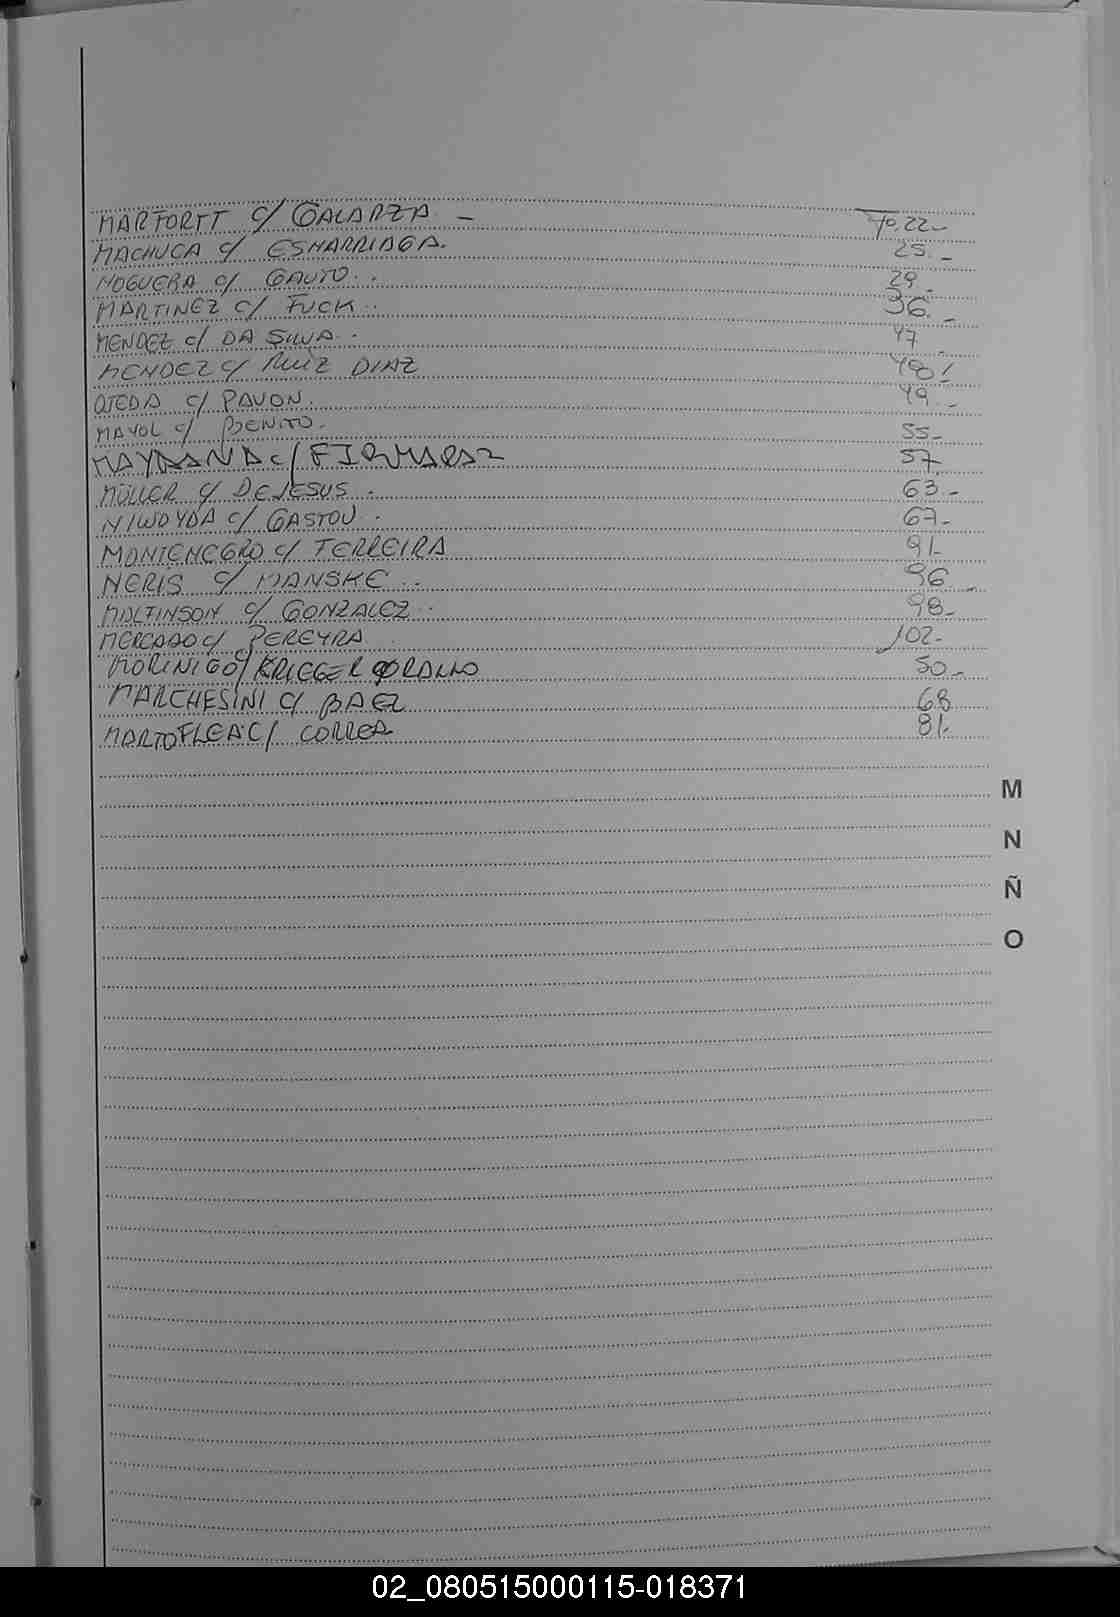 MARFORTT c/ GALARZA. - Fo. 22-
MACHUCA c/ ESMARRIAGA. 25.-
NOGUERA c/ GAUTO.. 29.-
MARTINEZ c/ FUCK.. 36.-
MENDEZ c/ DA SILVA.. 47.-
MENDEZ c/ RUIZ DIAZ 48!
OJEDA c/ PAVON. 49.-
MAYOL c/ BENITO. 55-
MAYDANA c/ 57
MÜLLER c/ DEJESUS. 63.-
c/ GASTOU. 67-
MONTENEGRO c/ FERREIRA 91-
NERIS c/ MANSKE.. 96.-
c/ GONZALEZ.. 98-
MERCADO c/ PEREYRA 102-
MORINIGO/KRIEGER 50.-
MARCHESINI c/ BAEZ 68
c/ CORREA 81.
M
N
Ñ
O
02_080515000115-018371